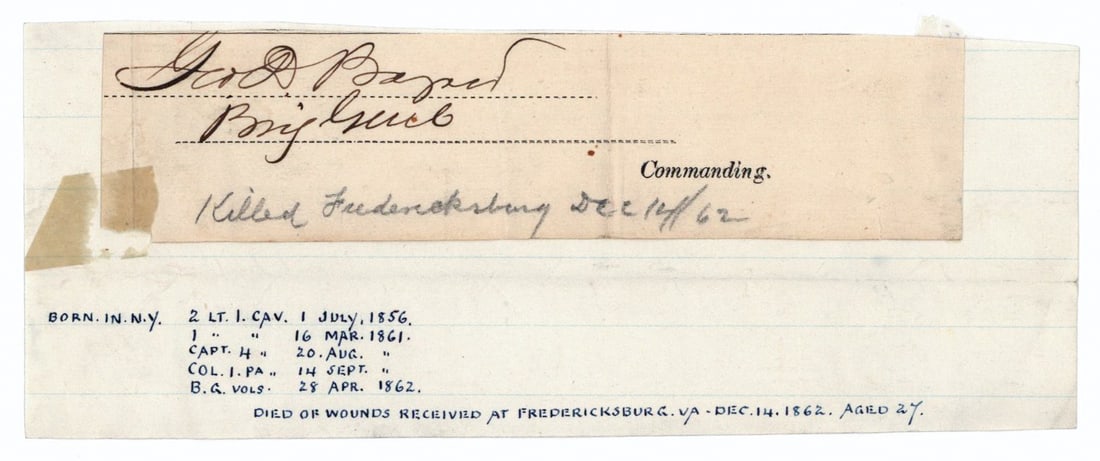 Geo D. Bayard
Brig Genl
Commanding.
Killed Fredericksburg Dec 14/62
BORN. IN. N.Y. 2 LT. 1. CAV. 1 JULY, 1856.
1 " " 16 MAR. 1861.
CAPT. 4 " 20. AUG. "
COL. 1. PA " 14 SEPT. "
B.G. VOLS. 28 APR. 1862.
DIED OF WOUNDS RECEIVED AT FREDERICKSBURG. VA - DEC. 14. 1862. AGED 27.